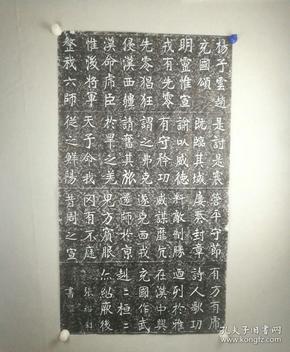 楊子雲趙
充國頌
明靈惟宣
戎有先零
先零猖狂
侵漢西疆
漢命虎臣
惟後將軍
整我六師
是討是震
既臨其域
諭以威德
有守矜功
謂之弗克
請奮其旅
于罕之羌
天子命我
從之鮮陽
營平守節
屢奏封章
料敵制勝
威謀靡亢
遂克西戎
還師於京
鬼方賓服
罔有不庭
昔周之宣
有方有虎
詩人歌功
迺列於雅
在漢中興
充國作武
赳赳桓桓
亦紹厥後
張裕釗
書
孔夫子旧书网